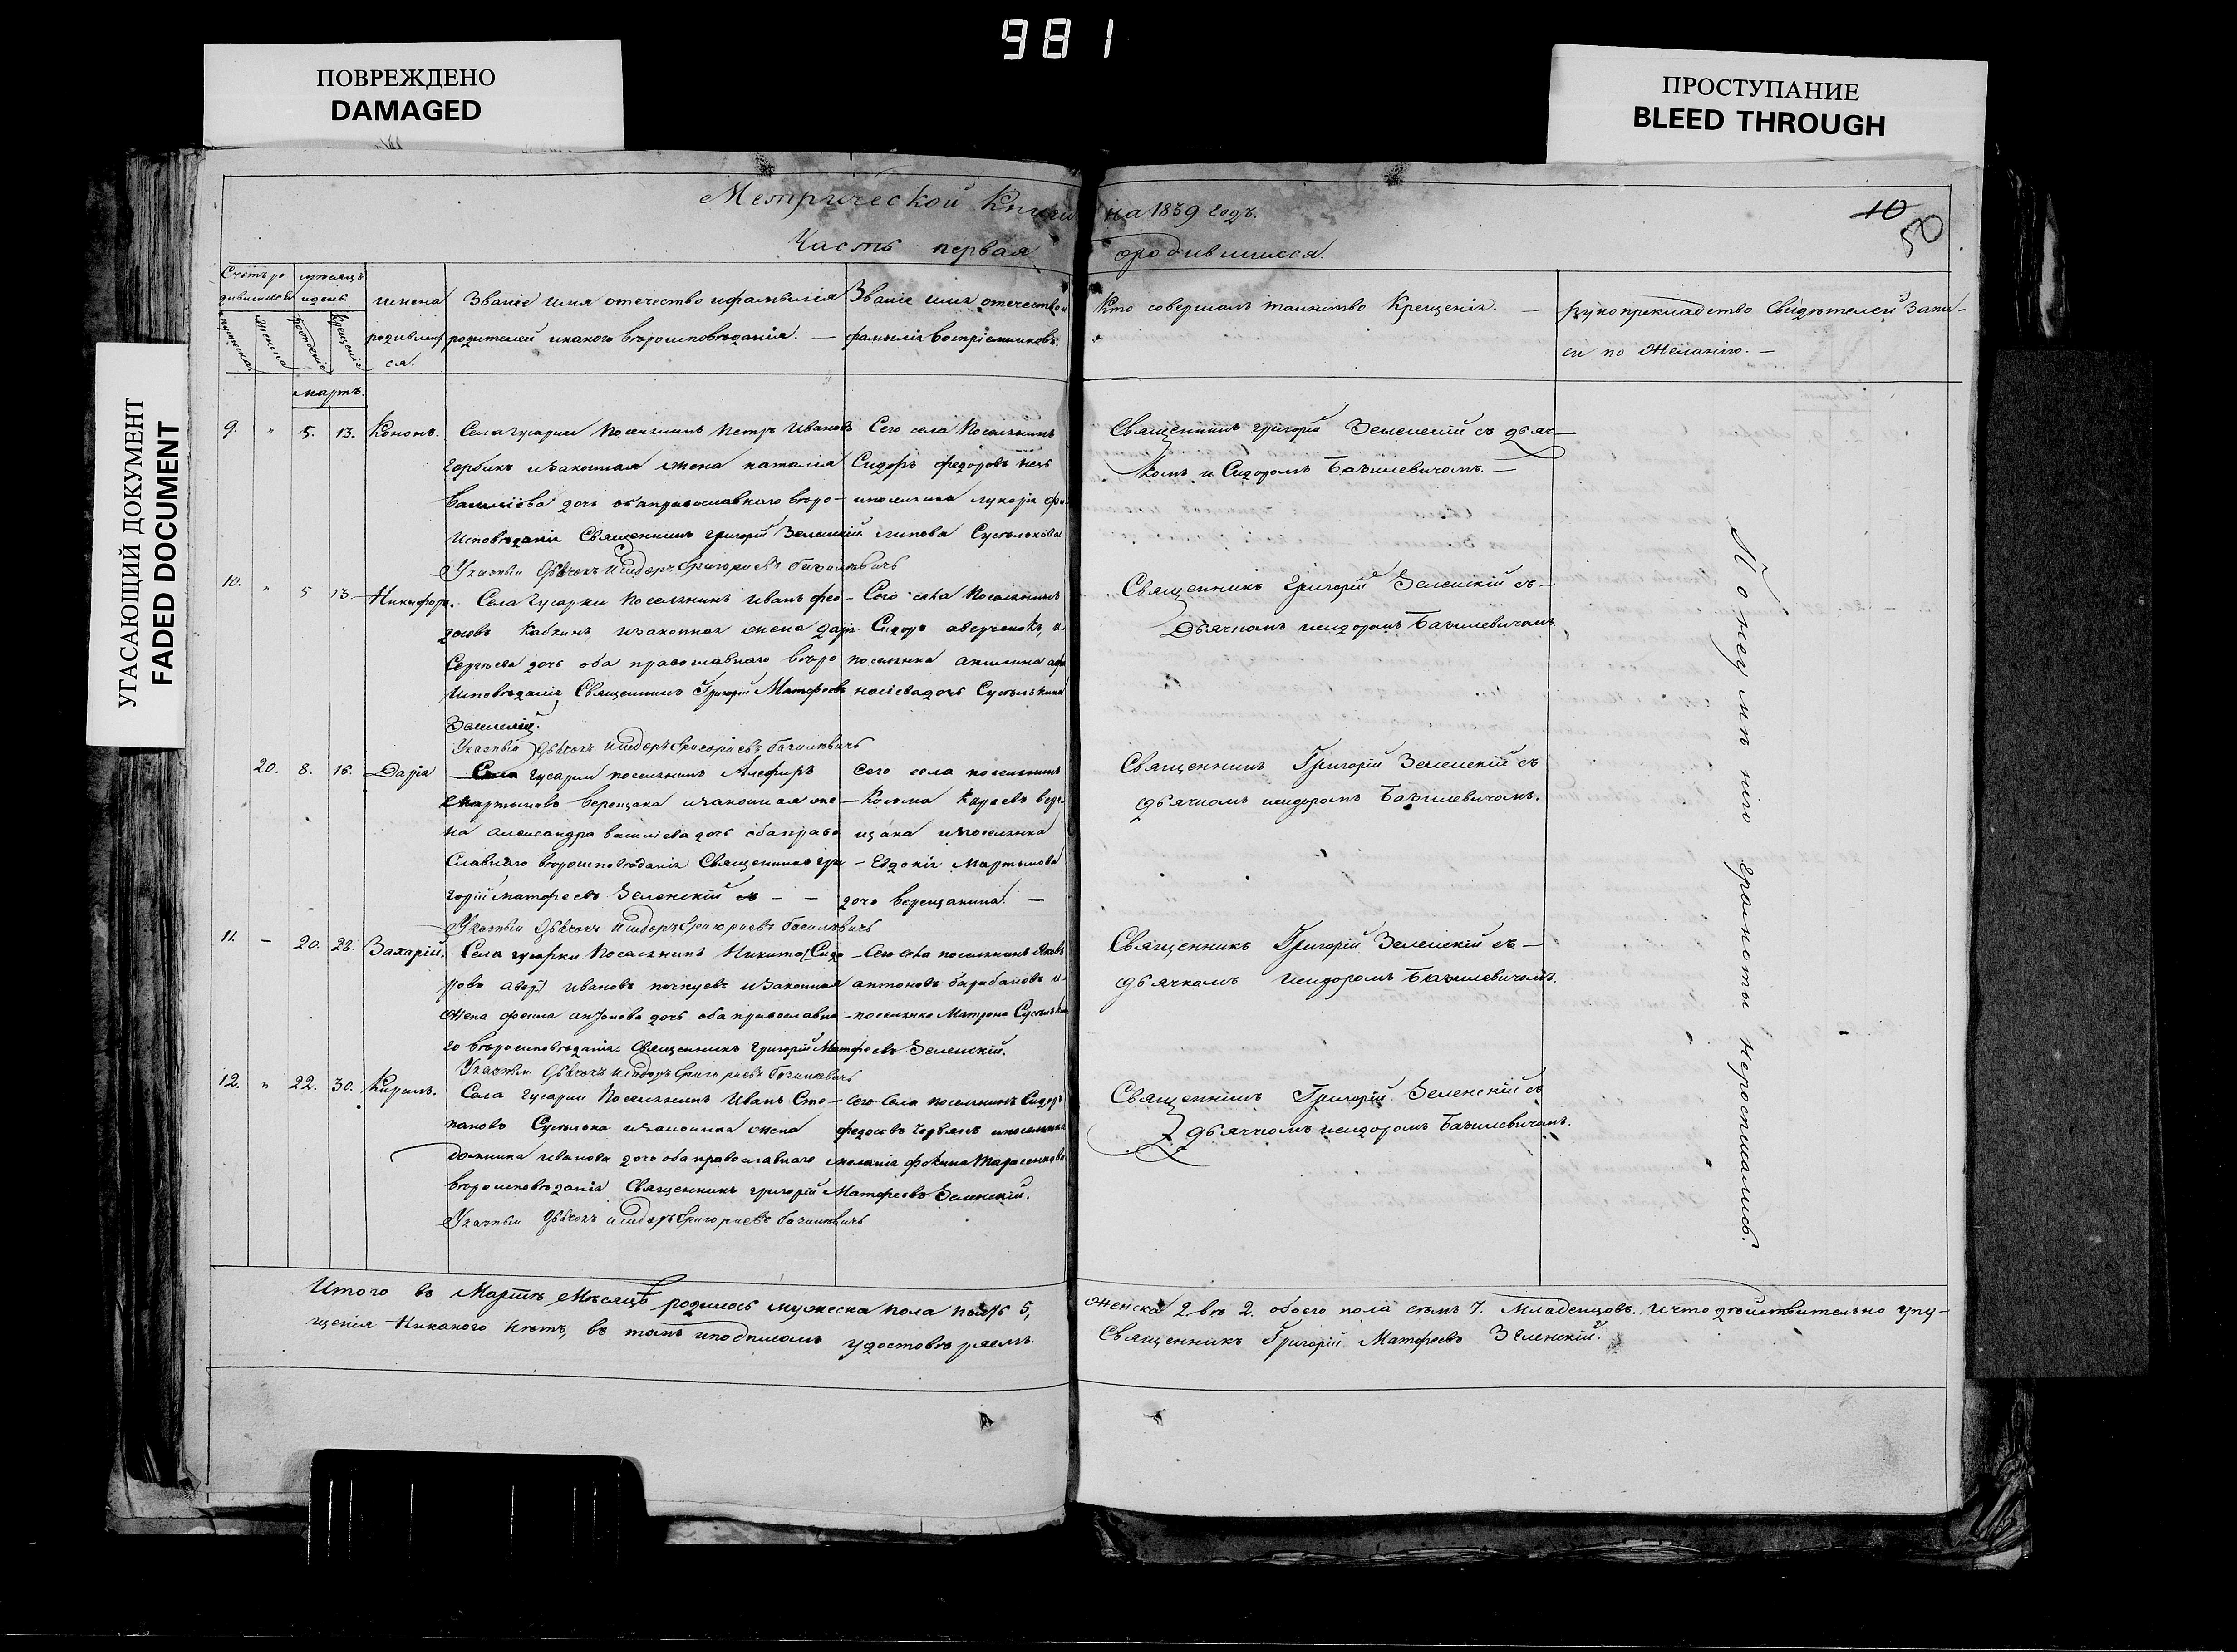 981
ПОВРЕЖДЕНО
DAMAGED
ПРОСТУПАНИЕ
BLEED THROUGH
УГАСАЮЩИЙ ДОКУМЕНТ
FADED DOCUMENT
Метрической Книги на 1839 годъ.
10
50
Часть первая ородившихся.
Счетъ ро
дившихся
мужеска
женска
мѣсяцъ
идень
рождения
крещения
имена
родивших
ся.
Званіе имя отечество ифамилія
родителей икакого вѣроисповѣданія. —
Званіе имя отечество и
фамилія воспріемниковъ.
Кто совершалъ таинство Крещенія. —
Рукоприкладство Свидѣтелей Запи-
си по Желанію. —
мартъ.
9. " 5. 13. Кононъ.
Села гусарки Поселянинъ Петръ Ивановъ
Горбикъ изаконная жена наталія
Василіева дочь оба православнаго вѣро-
Исповѣданія Священникъ григорій Зеленскій
Указный Дьячокъ Исидоръ Григориевъ базилевичъ
Сего села Поселянинъ
Сидоръ федоровъ
ипоселянка лукерія фи-
липова
Священникъ григорій Зеленскій съ дьяч-
комъ и Сидоромъ Базилевичомъ. —
10. " 5 13. Никифоръ.
Села Гусарки Поселянинъ Иванъ фео-
доровъ Кабкинъ изаконная жена дарія
Сергѣева дочь оба православнаго вѣро
исповѣданія Священникъ Григорій Матфеевъ
Зеленскій.
Указный Дьячокъ Исидоръ Григориевъ базилевичъ
Сего села Поселянинъ
Сидоръ аверченокъ, и-
поселянка акилина афа
насіева дочь
Священникъ Григорій Зеленскій съ —
Дьячкомъ исидоромъ Базилевичомъ
20. 8. 16. Дарія
Села гусарки поселянинъ
Мартыновъ верещака изаконная же-
на александра василіева дочь оба право
славнаго вѣроисповѣданія Священникъ гри-
горій матфеевъ Зеленскій съ — —
Указный Дьячокъ Исидоръ Григориевъ базилевичъ
Сего села поселянинъ
Косьма Кареевъ вере-
щака ипоселянка
Евдокія Мартынова
дочь верещакина. —
Священникъ Григорій Зеленскій съ
дьячкомъ исидоромъ Базилевичомъ.
11. — 20. 28. Захарій.
Села гусарки Поселянинъ Никита
Ивановъ изаконная
Жена антонова дочь оба православна
го вѣроисповѣданія Священникъ григорій Матфеевъ Зеленскій.
Указный Дьячокъ Исидоръ Григориевъ базилевичъ
Сего села поселянинъ Яковъ
антоновъ барабановъ и-
поселянка Матрона
Священникъ Григорій Зеленскій съ —
дьячкомъ Исидоромъ Базилевичомъ.
12. " 22. 30. Кирилъ.
Села гусарки Поселянинъ Иванъ Сте-
пановъ Сусѣлока изаконная жена
домника иванова дочь оба православнаго
вѣроисповѣданія Священникъ григорій Матфеевъ Зеленскій.
Указный Дьячокъ Исидоръ Григориевъ базилевичъ
Сего Села поселянинъ Сидоръ
федосѣевъ ипоселянка
меланія фокина
Священникъ Григорій Зеленскій съ
дьячкомъ исидоромъ Базилевичомъ.
Понеумѣнію грамоты неросписались.
Итого въ Мартѣ Мѣсяцѣ родилось мужеска пола пять 5, женска 2 вѣ 2. обоего пола семь 7. Младенцовъ. ичто дѣйствительно упу-
щенія Никакого нѣтъ, въ томъ иподписомъ удостовѣряемъ. Священникъ Григорій Матфеевъ Зеленскій.